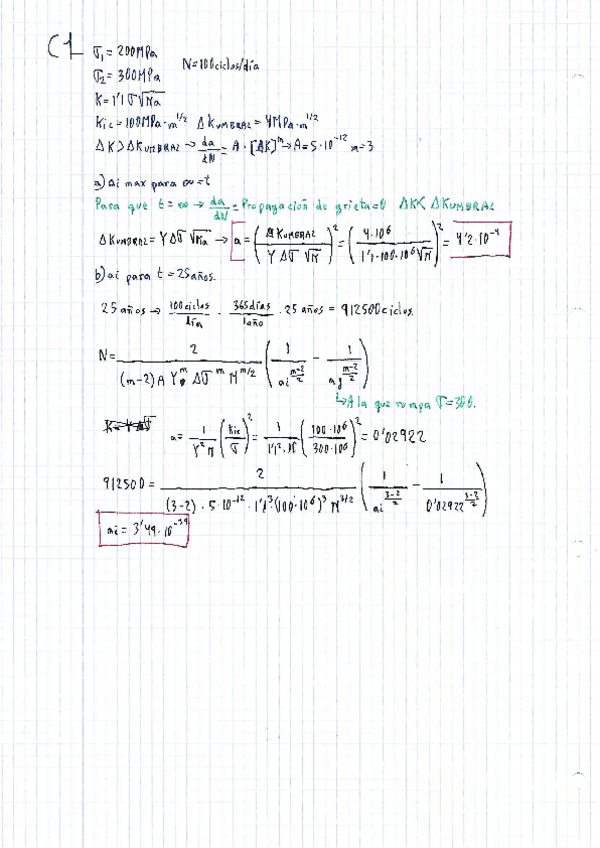 C1
σ₁ = 200MPa
N=100ciclos/día
σ₂ = 300MPa
K=1'1 σ√πa
K_IC = 100MPa·m^1/2 ΔK_UMBRAL = 4MPa·m^1/2
ΔK>ΔK_UMBRAL → da/dN = A·[ΔK]^m → A=5·10^-12 m=3
a) ai max para ∞=t
Para que t=∞ → da/dN = Propagación de grieta=0 ΔK< ΔK_UMBRAL
ΔK_UMBRAL = Y Δσ √πa → a = (ΔK_UMBRAL / Y Δσ √π)² = (4·10⁶ / 1'1·100·10⁶√π)² = 4'2·10^-4
b) ai para t=25años.
25 años → 100ciclos/día · 365días/1año · 25 años = 912500ciclos.
N = 2 / ((m-2) A Y^m Δσ^m π^m/2) (1/ai^(m-2)/2 − 1/af^(m-2)/2)
↳ A la que rompa σ=300.
a = 1/Y²π (K_IC/σ)² = 1/1'1²·π (100·10⁶ / 300·10⁶)² = 0'02922
912500 = 2 / ((3-2)·5·10^-12·1'1³(100·10⁶)³ π^3/2) (1/ai^(3-2)/2 − 1/0'02922^(3-2)/2)
ai = 3'49·10^-39